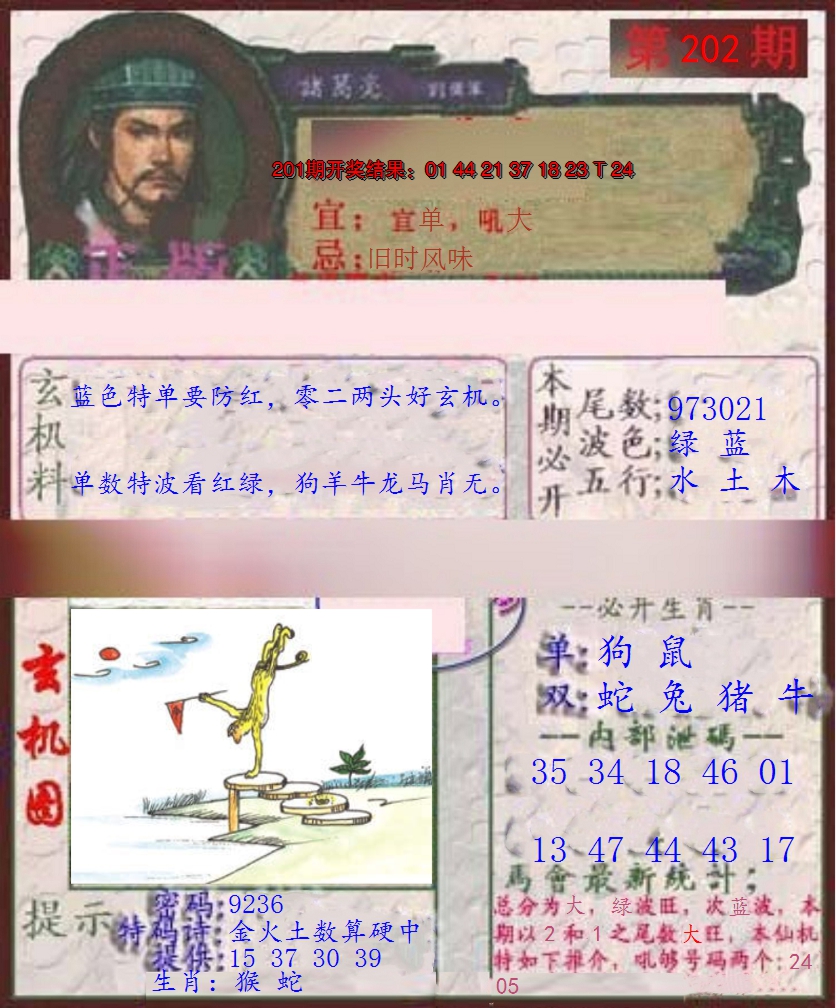 第 202 期
諸葛亮
201期开奖结果：01 44 21 37 18 23 T 24
宜：宜单，吼大
忌：旧时风味
正版
玄机料
蓝色特单要防红，零二两头好玄机。
单数特波看红绿，狗羊牛龙马肖无。
本期必开
尾数;973021
波色;绿 蓝
五行;水 土 木
玄机图
--必开生肖--
单:狗 鼠
双:蛇 兔 猪 牛
—内部泄碼—
35 34 18 46 01
13 47 44 43 17
馬會最新統計；
总分为大，绿波旺，次蓝波，本
期以2和1之尾数大旺，本仙机
特如下推介，吼够号码两个:24
05
提示
密码:9236
特码诗:金火土数算硬中
提供:15 37 30 39
生肖：猴 蛇